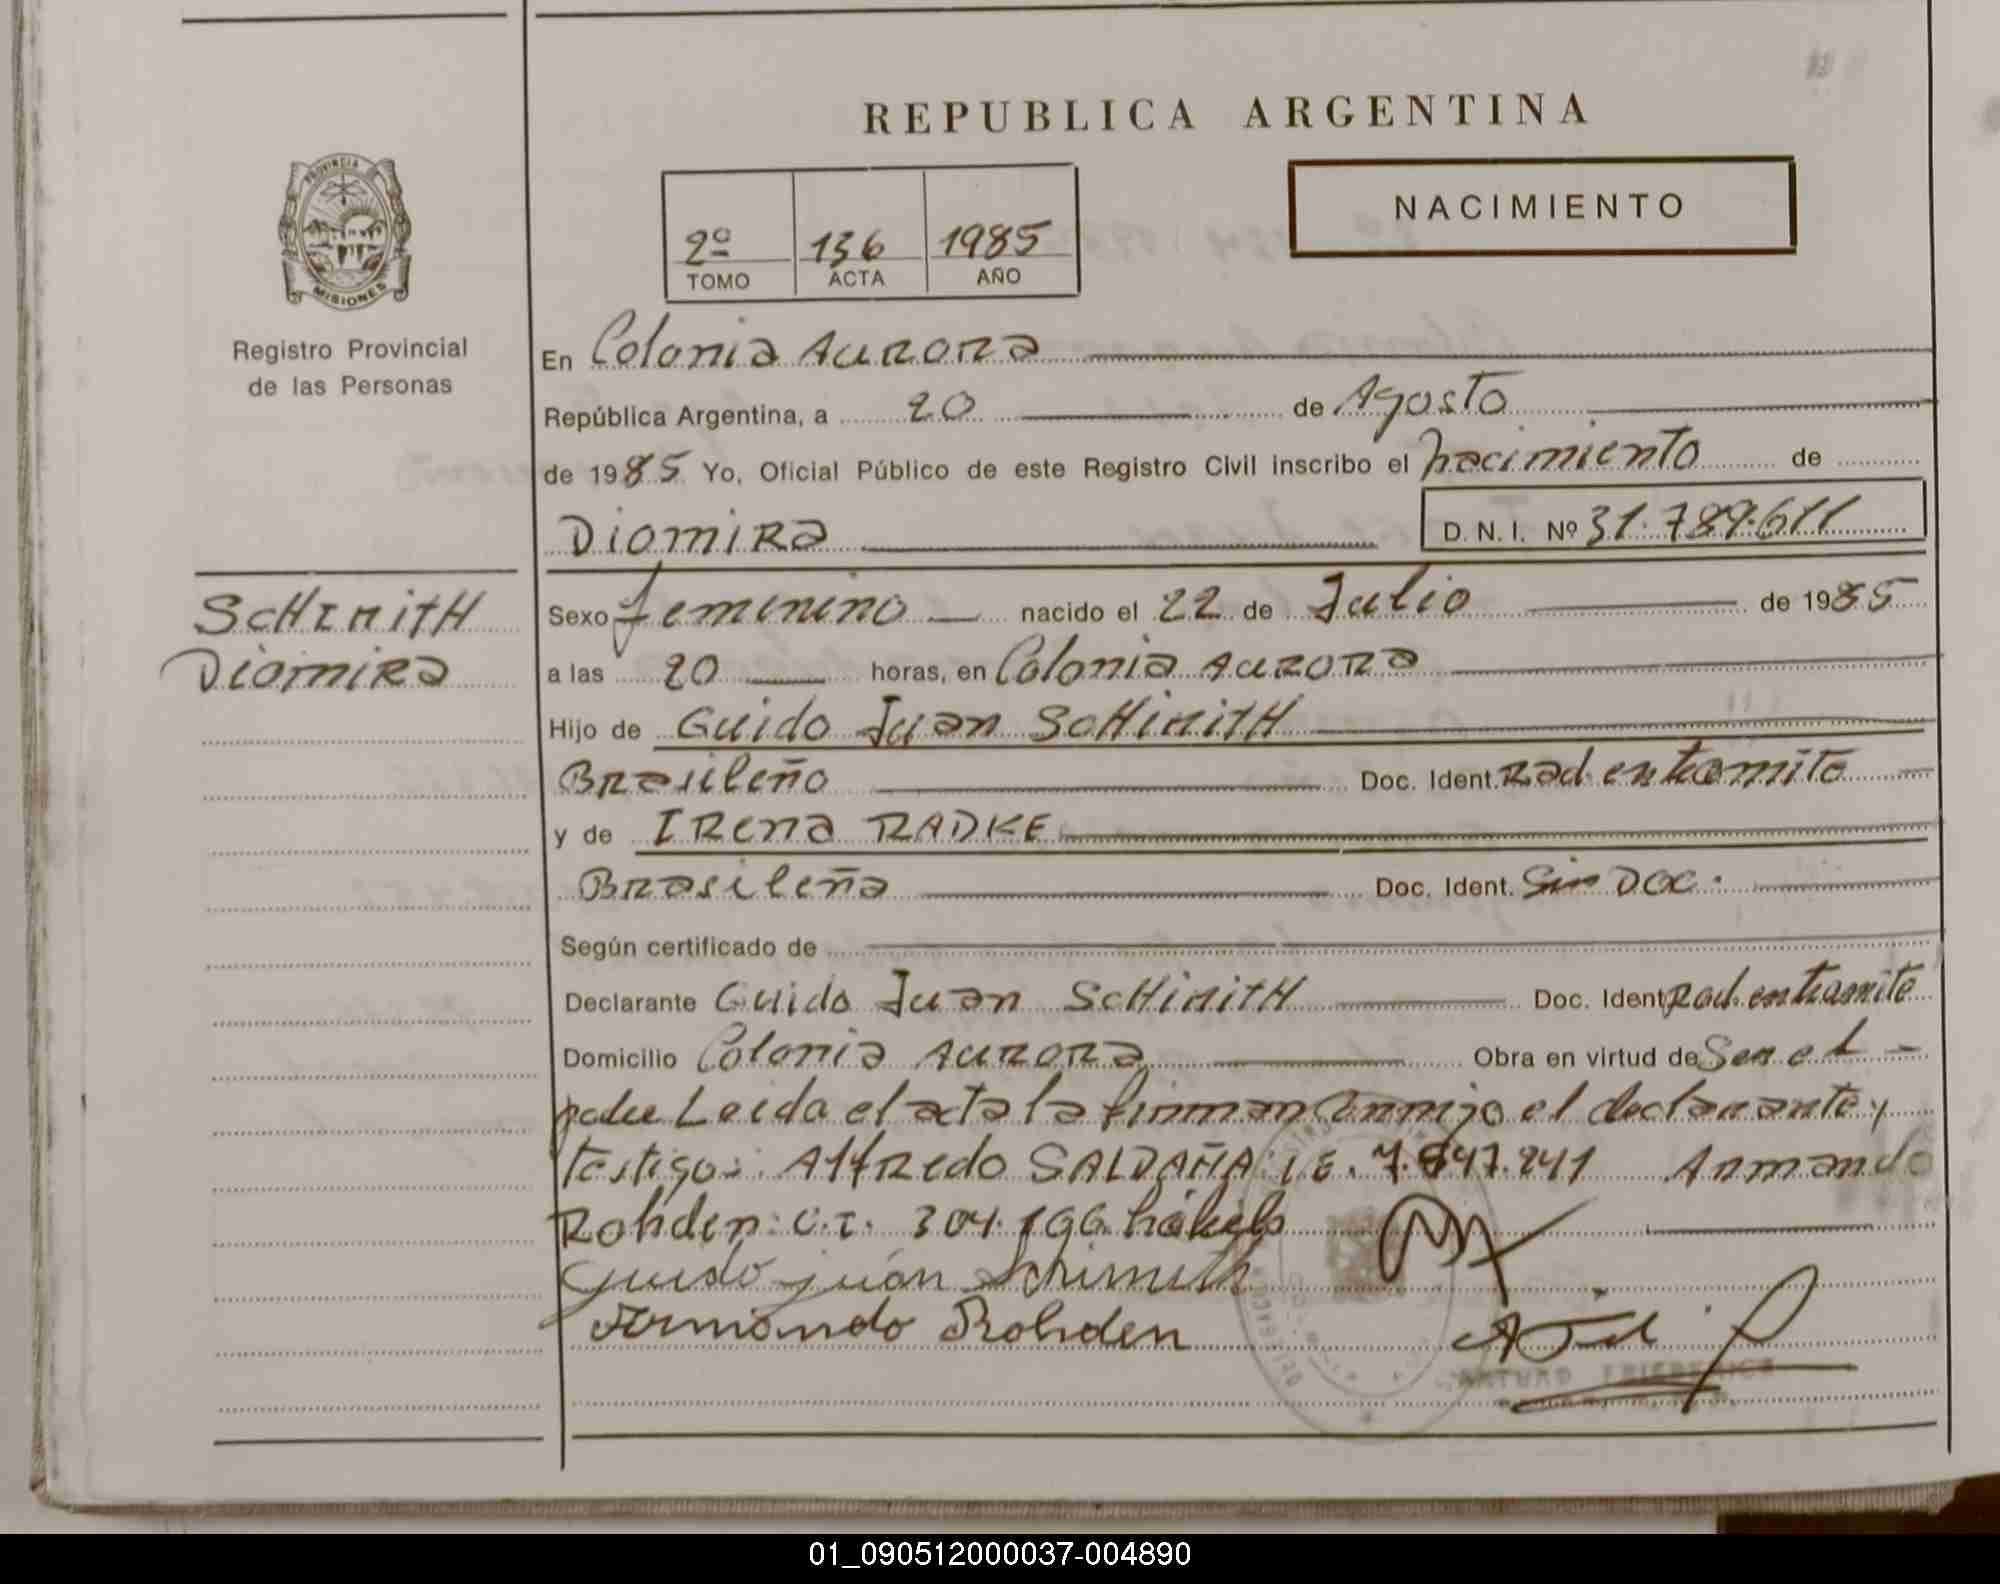 REPUBLICA ARGENTINA
NACIMIENTO
2º 136 1985
TOMO ACTA AÑO
PROVINCIA DE
MISIONES
Registro Provincial
de las Personas
En Colonia Aurora
República Argentina, a 20 de Agosto
de 1985 Yo, Oficial Público de este Registro Civil inscribo el nacimiento de
Diomira D. N. I. Nº 31.789.611
SCHIMITH
Diomira
Sexo femenino nacido el 22 de Julio de 1985
a las 20 horas, en Colonia Aurora
Hijo de Guido Juan SCHIMITH
Brasileño Doc. Ident. Rad. en tramite
y de IRena RADKE
Brasileña Doc. Ident. Sin Doc.
Según certificado de
Declarante Guido Juan SCHIMITH Doc. Ident. Rad. en tramite
Domicilio Colonia Aurora Obra en virtud de Ser el
padre Leida el acta la firman conmigo el declarante y
testigos: Alfredo SALDAÑA I.E. 7.847.241 Armando
Rohden: C.I. 304.196
Guido juan Schimith
Armando Rohden
ARTURO FRIEDERICH
01_090512000037-004890